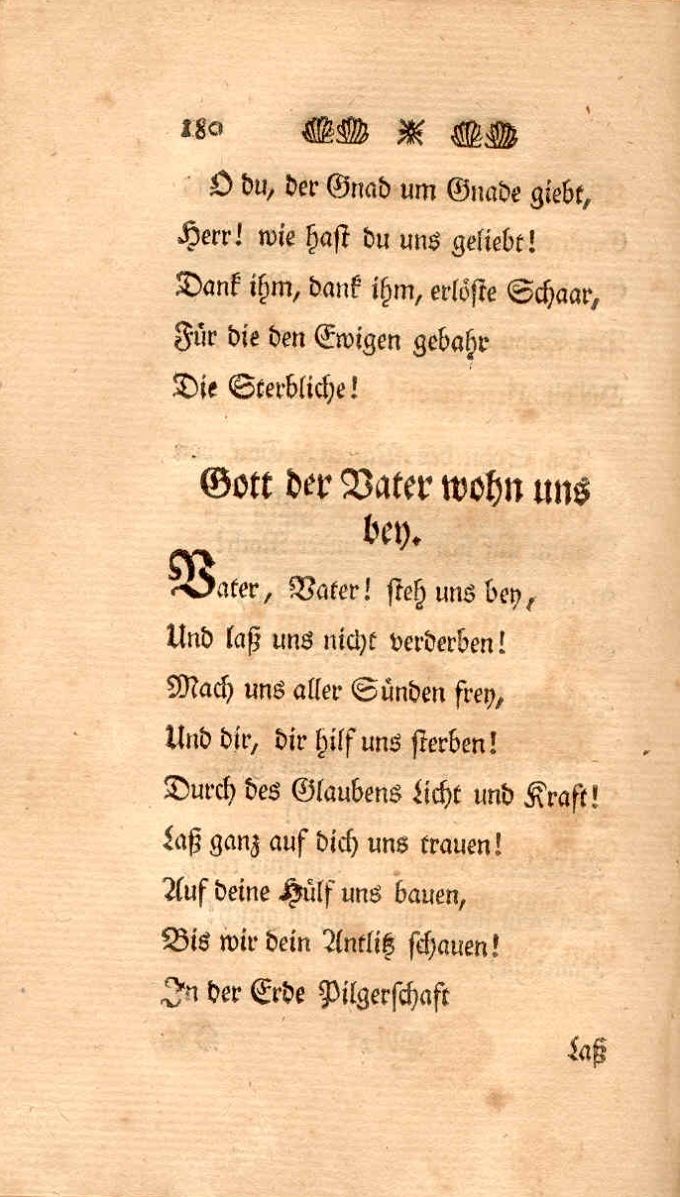 180
O du, der Gnad um Gnade giebt,
Herr! wie hast du uns geliebt!
Dank ihm, dank ihm, erlöste Schaar,
Für die den Ewigen gebahr
Die Sterbliche!
Gott der Vater wohn uns
bey.
Vater, Vater! steh uns bey,
Und laß uns nicht verderben!
Mach uns aller Sünden frey,
Und dir, dir hilf uns sterben!
Durch des Glaubens Licht und Kraft!
Laß ganz auf dich uns trauen!
Auf deine Hülf uns bauen,
Bis wir dein Antlitz schauen!
In der Erde Pilgerschaft
Laß